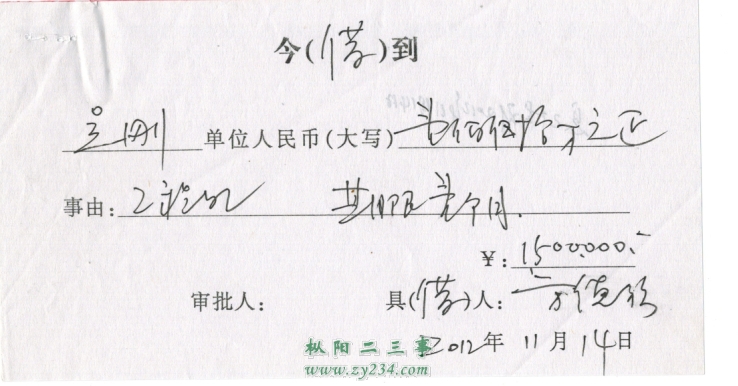 今(借)到
单位人民币(大写) 壹佰伍拾万元正
事由: 工程款 期限壹个月.
¥: 1500000.-
审批人: 具(借)人: 方德
2012年 11月 14日
枞阳二三事
www.zy234.com